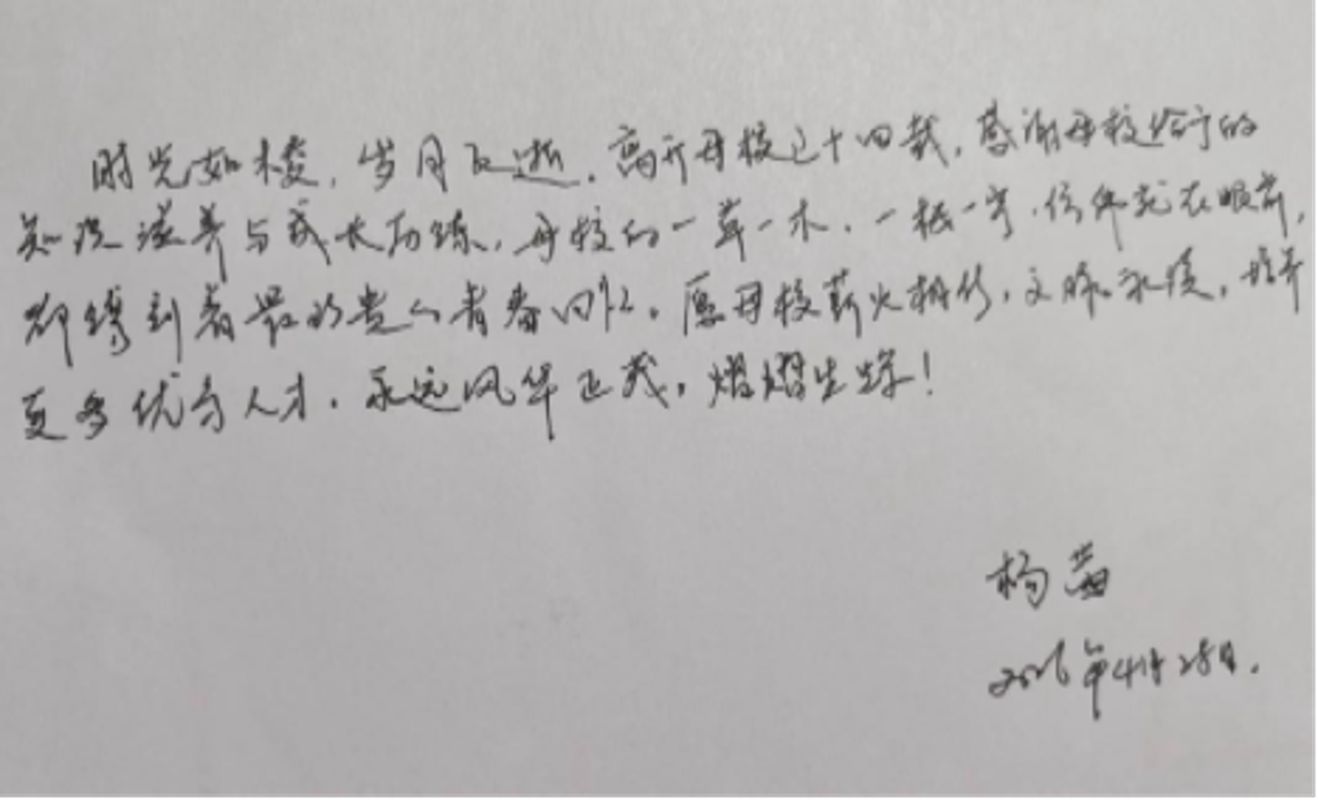 时光如梭，岁月飞逝。离开母校已十四载，感谢母校给予的
知识滋养与成长历练，母校的一草一木、一板一字，依然就在眼前，
都镌刻着最珍贵的青春回忆。愿母校薪火相传，文脉永续，培养
更多优秀人才，永远风华正茂，熠熠生辉！
杨茜
2026年4月28日.